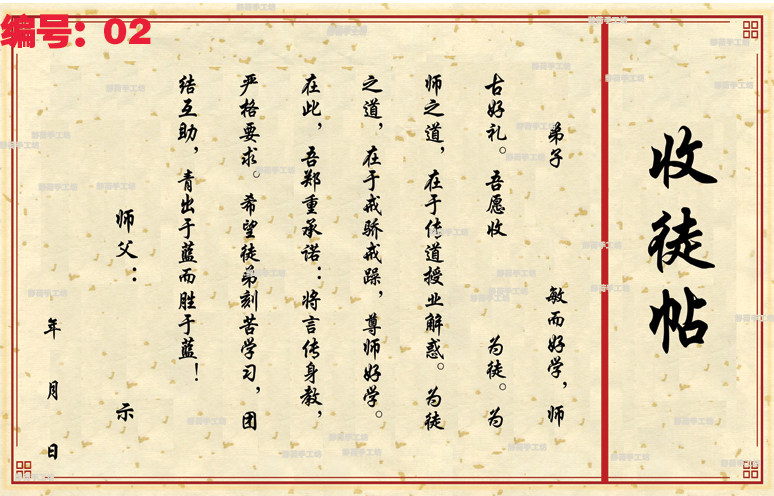 编号：02
收徒帖
弟子 敏而好学，师
古好礼。吾愿收 为徒。为
师之道，在于传道授业解惑。为徒
之道，在于戒骄戒躁，尊师好学。
在此，吾郑重承诺：将言传身教，
严格要求。希望徒弟刻苦学习，团
结互助，青出于蓝而胜于蓝！
师父： 示
年 月 日